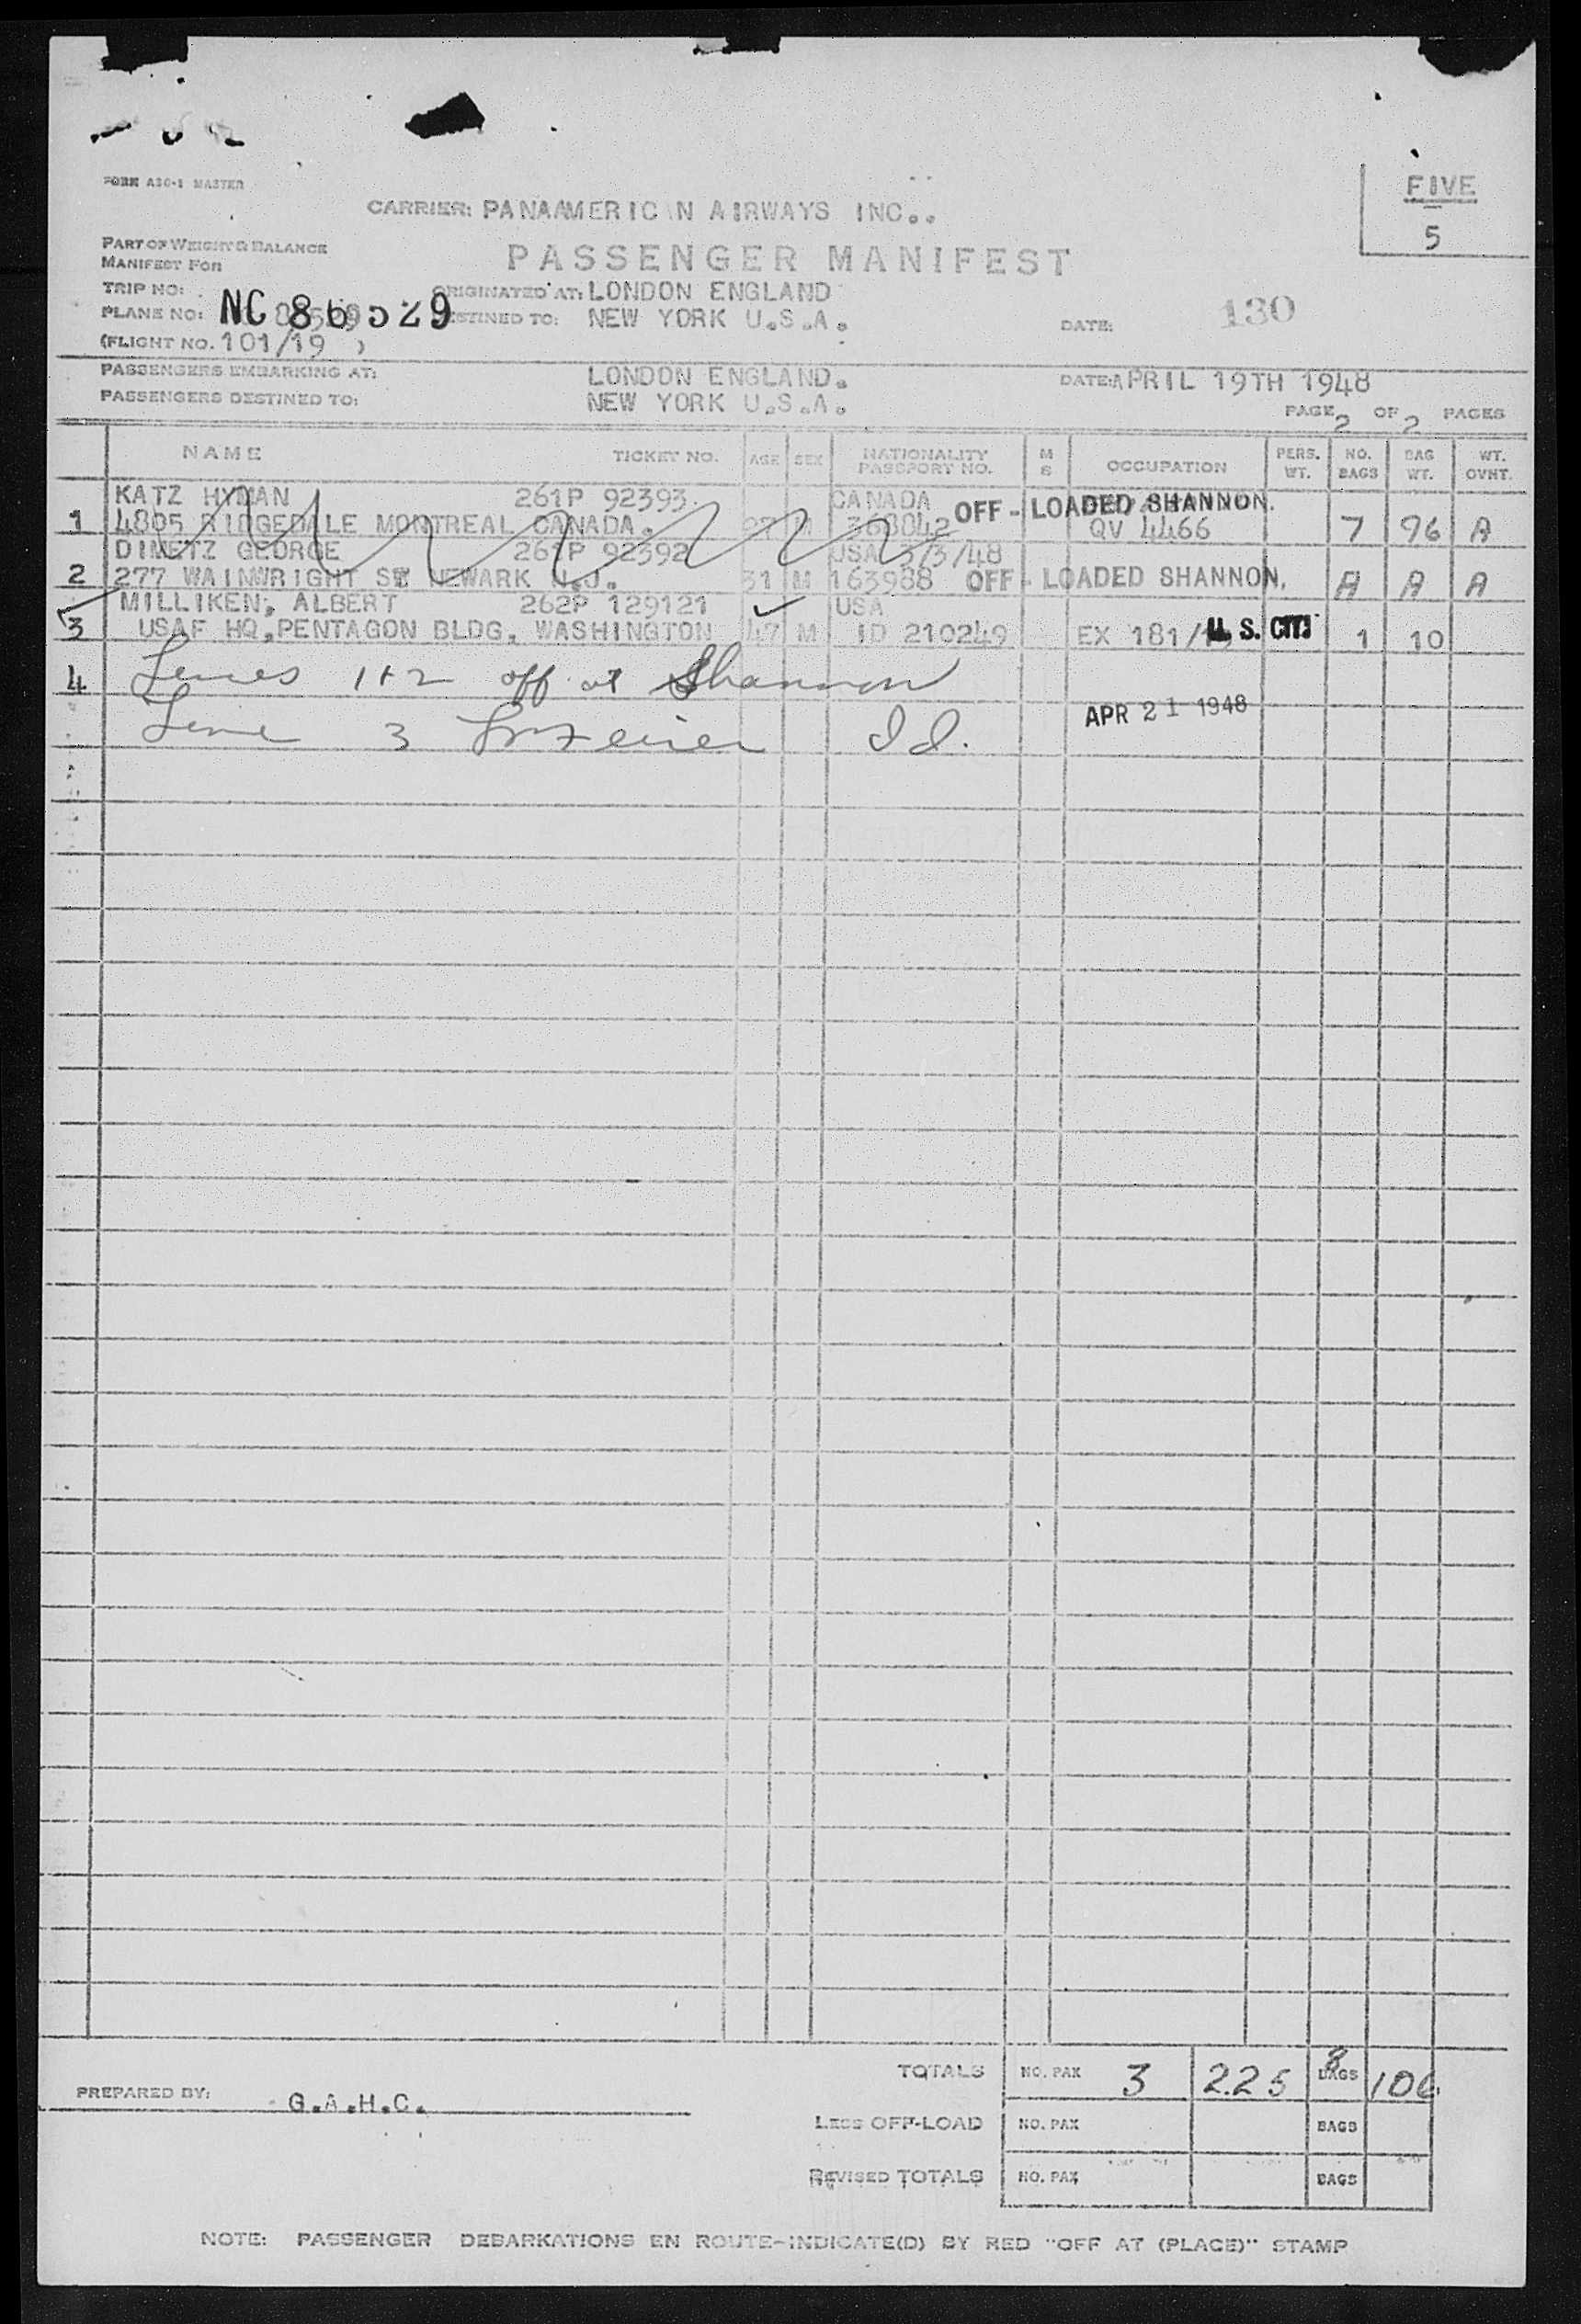 FORM A20-1 MASTER
FIVE
5
CARRIER: PANAAMERICAN AIRWAYS INC..
PART OF WEIGHT & BALANCE
MANIFEST FOR
PASSENGER MANIFEST
TRIP NO:
ORIGINATED AT: LONDON ENGLAND
PLANE NO: NC 86529
DESTINED TO: NEW YORK U.S.A.
DATE: 130
(FLIGHT NO. 101/19 )
PASSENGERS EMBARKING AT: LONDON ENGLAND. DATE: APRIL 19TH 1948
PASSENGERS DESTINED TO: NEW YORK U.S.A.
PAGE 2 OF 2 PAGES
NAME TICKET NO. AGE SEX NATIONALITY PASSPORT NO. M S OCCUPATION PERS. WT. NO. BAGS BAG WT. WT. OVHT.
KATZ HYMAN 261P 92393. CANADA OFF-LOADED SHANNON.
1 4805 RIDGEDALE MONTREAL CANADA. M 368042 QV 4466 7 96 A
DIMETZ GEORGE 261P 92392 USA 3/3/48
2 277 WAINWRIGHT ST NEWARK N.J. 31 M 163988 OFF-LOADED SHANNON. A A A
MILLIKEN, ALBERT 262P 129121 USA
3 USAF HQ, PENTAGON BLDG, WASHINGTON 47 M ID 210249 EX 181/ U.S. CITI 1 10
4 Lines 1+2 off at Shannon
APR 21 1948
Line 3 Id.
TOTALS NO. PAX 3 225 8 BAGS 106
PREPARED BY: G.A.H.C.
LESS OFF-LOAD NO. PAX BAGS
REVISED TOTALS NO. PAX BAGS
NOTE: PASSENGER DEBARKATIONS EN ROUTE-INDICATE(D) BY RED "OFF AT (PLACE)" STAMP